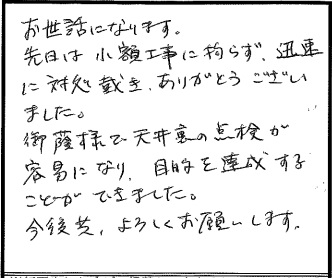 お世話になります。
先日は小額工事に拘らず、迅速
に対処戴き、ありがとうござい
ました。
御蔭様で天井裏の点検が
容易になり、目的を達成する
ことができました。
今後共、よろしくお願いします。